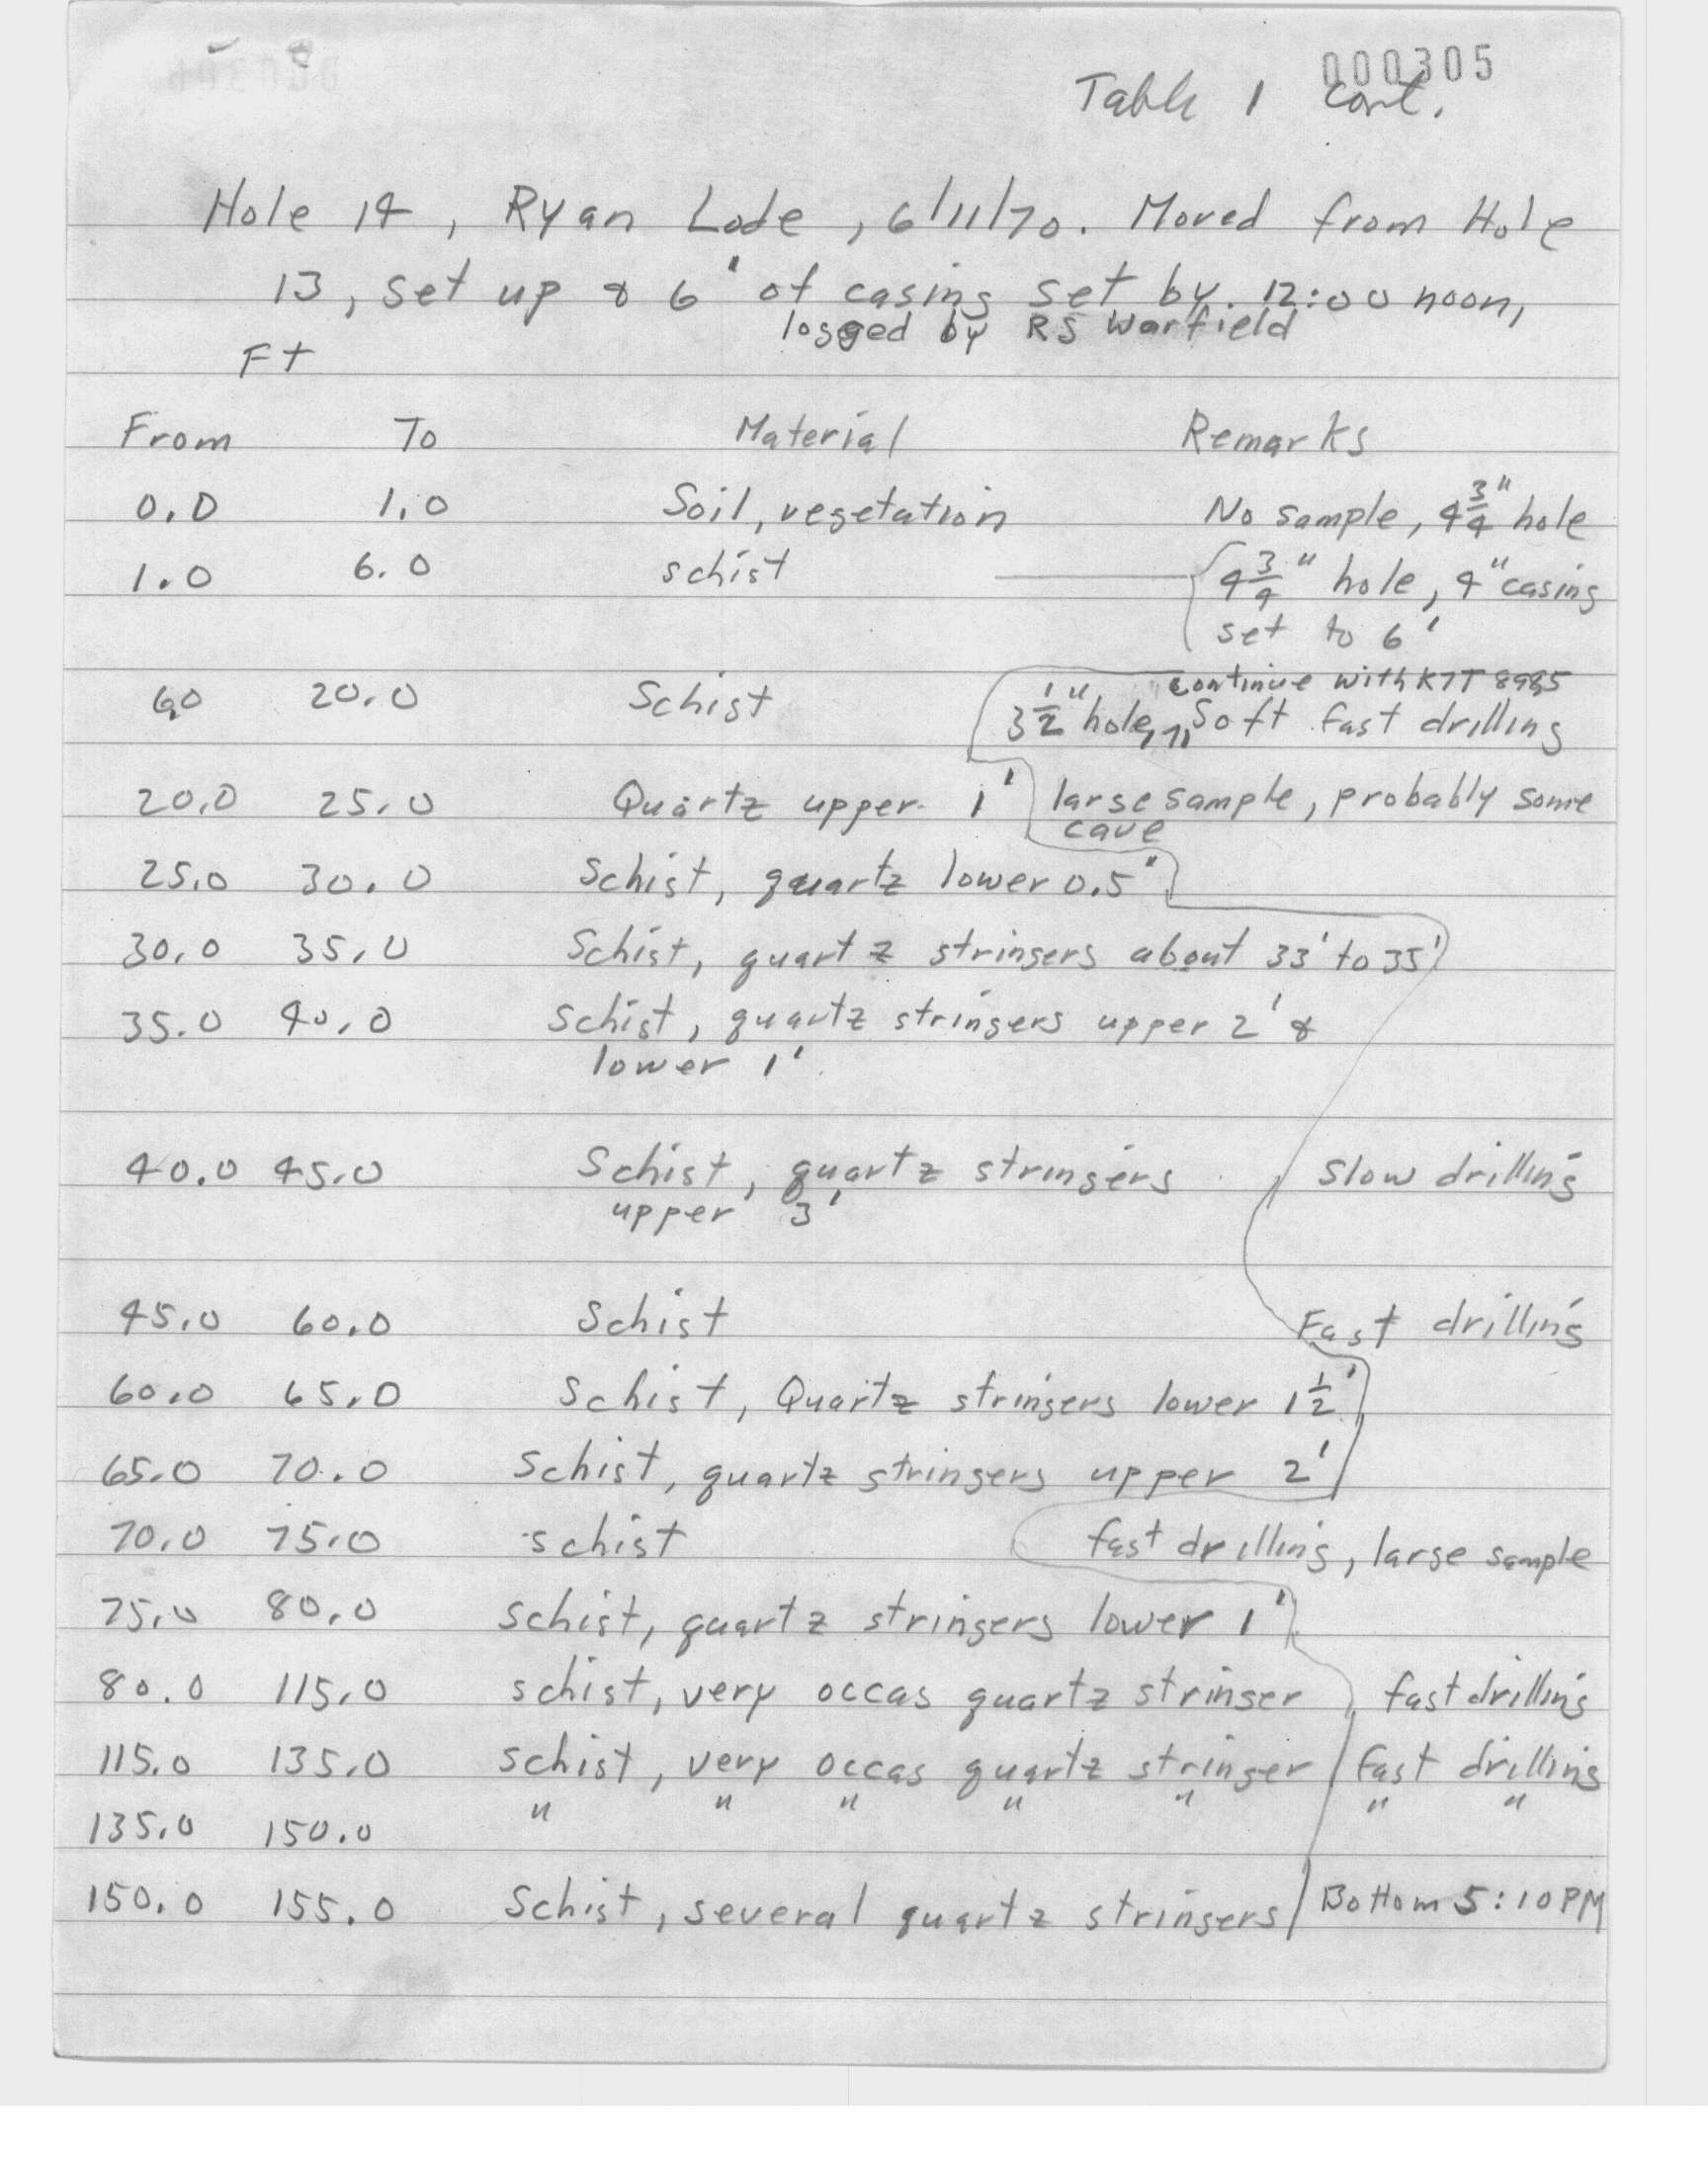 000305
Table 1 cont.
Hole 14, Ryan Lode, 6/11/70. Moved from Hole
13, set up & 6' of casing set by 12:00 noon,
logged by RS Warfield
Ft
From To Material Remarks
0.0 1.0 Soil, vegetation No sample, 4 3/4" hole
1.0 6.0 schist 4 3/4" hole, 4" casing
set to 6'
continue with
6.0 20.0 Schist 3 1/2" hole, Soft fast drilling
20.0 25.0 Quartz upper 1' large sample, probably some
cave
25.0 30.0 Schist, quartz lower 0.5'
30.0 35.0 Schist, quartz stringers about 33' to 35'
35.0 40.0 Schist, quartz stringers upper 2' &
lower 1'
40.0 45.0 Schist, quartz stringers Slow drilling
upper 3'
45.0 60.0 Schist Fast drilling
60.0 65.0 Schist, Quartz stringers lower 1 1/2'
65.0 70.0 Schist, quartz stringers upper 2'
70.0 75.0 schist fast drilling, large sample
75.0 80.0 schist, quartz stringers lower 1'
80.0 115.0 schist, very occas quartz stringer fast drilling
115.0 135.0 schist, very occas quartz stringer fast drilling
135.0 150.0 " " " " " " "
150.0 155.0 Schist, several quartz stringers Bottom 5:10 PM